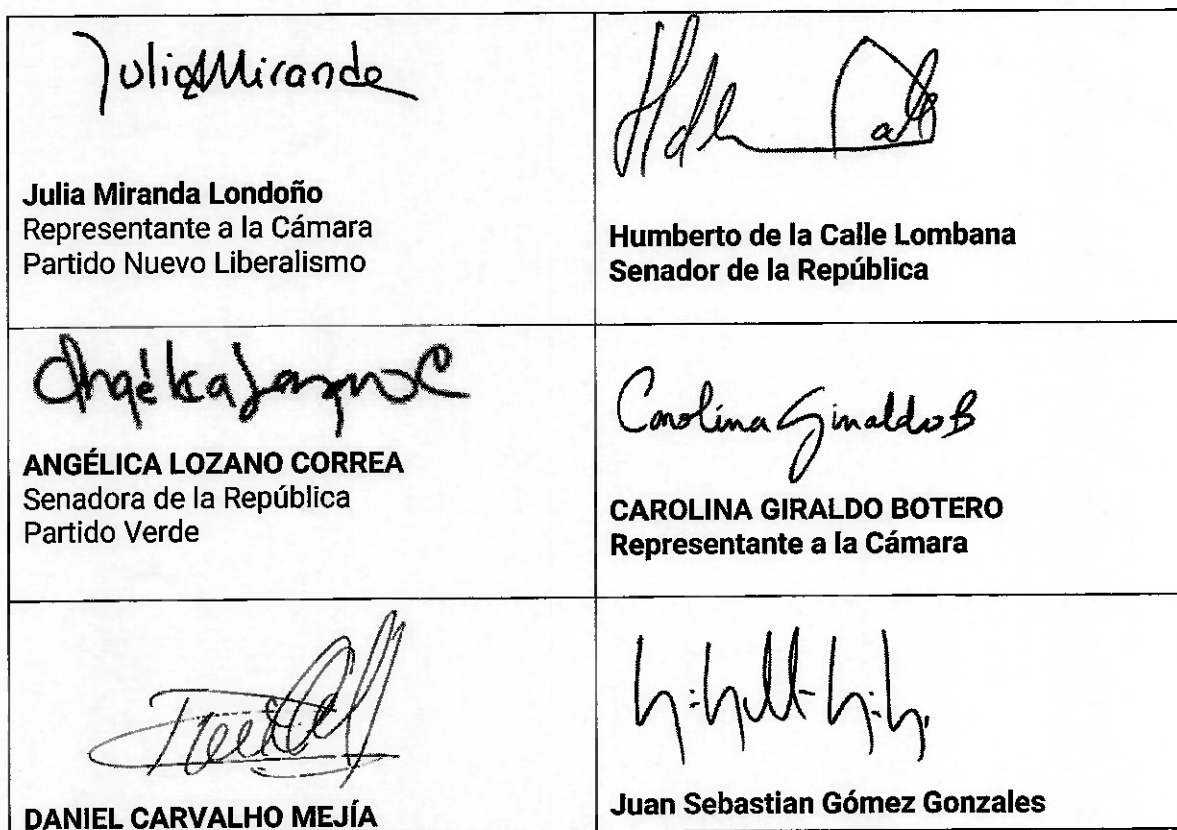 JuliaMiranda
Julia Miranda Londoño
Representante a la Cámara
Partido Nuevo Liberalismo
Humberto de la Calle Lombana
Senador de la República
Angélica Lozano C
ANGÉLICA LOZANO CORREA
Senadora de la República
Partido Verde
Carolina Giraldo B
CAROLINA GIRALDO BOTERO
Representante a la Cámara
DANIEL CARVALHO MEJÍA
Juan Sebastian Gómez Gonzales